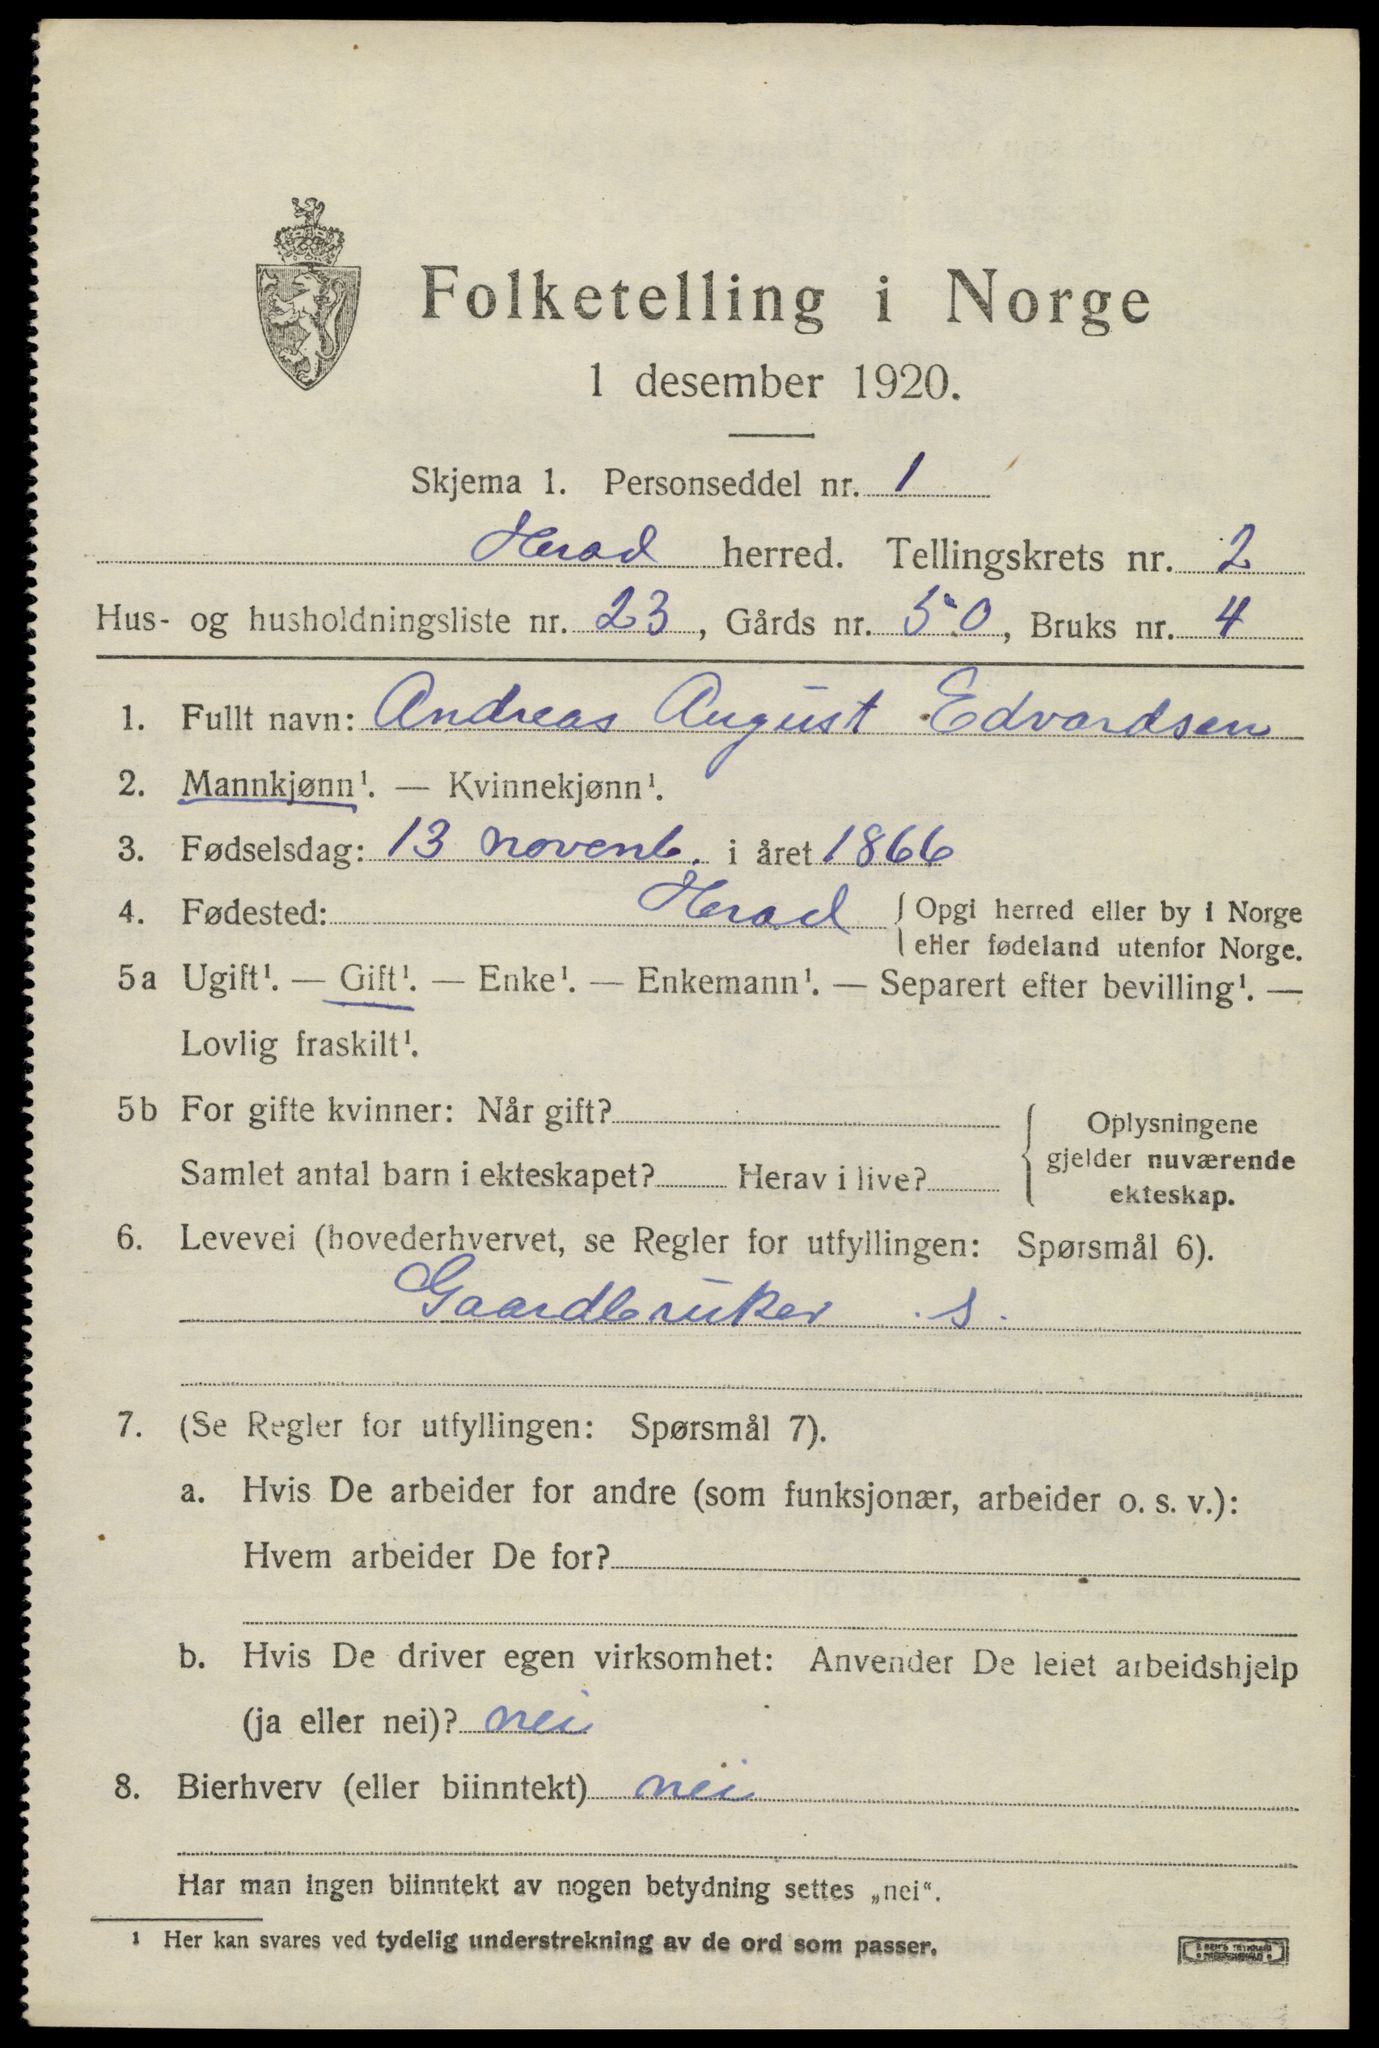 Folketelling i Norge
1 desember 1920.
Skjema 1. Personseddel nr. 1
Herad herred. Tellingskrets nr. 2
Hus- og husholdningsliste nr. 23, Gårds nr. 50, Bruks nr. 4
1. Fullt navn: Andreas August Edvardsen
2. Mannkjønn¹. — Kvinnekjønn¹.
3. Fødselsdag: 13 novemb. i året 1866
4. Fødested: Herad { Opgi herred eller by i Norge
eller fødeland utenfor Norge.
5a Ugift¹. — Gift¹. — Enke¹. — Enkemann¹. — Separert efter bevilling¹. —
Lovlig fraskilt¹.
5b For gifte kvinner: Når gift?
Samlet antal barn i ekteskapet? Herav i live?
Oplysningene
gjelder nuværende
ekteskap.
6. Levevei (hovederhvervet, se Regler for utfyllingen: Spørsmål 6).
Gaardbruker .s.
7. (Se Regler for utfyllingen: Spørsmål 7).
a. Hvis De arbeider for andre (som funksjonær, arbeider o. s. v.):
Hvem arbeider De for?
b. Hvis De driver egen virksomhet: Anvender De leiet arbeidshjelp
(ja eller nei)? nei
8. Bierhverv (eller biinntekt) nei
Har man ingen biinntekt av nogen betydning settes „nei“.
1 Her kan svares ved tydelig understrekning av de ord som passer.